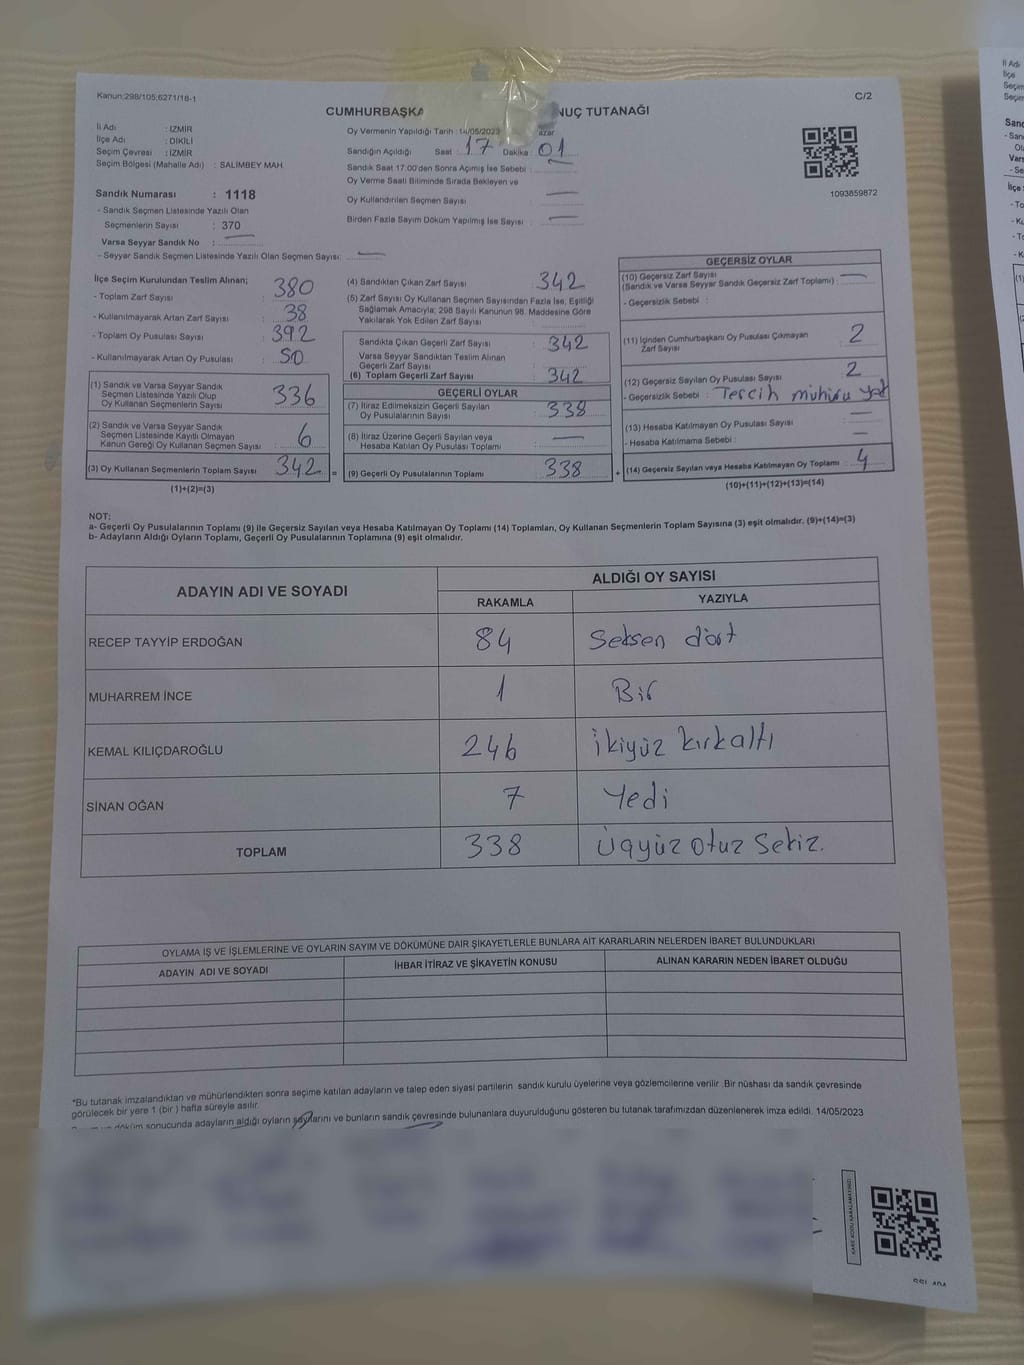 Kanun:298/105;6271/18-1
C/2
CUMHURBAŞKA NUÇ TUTANAĞI
İl Adı : İZMİR
İlçe Adı : DİKİLİ
Seçim Çevresi : İZMİR
Seçim Bölgesi (Mahalle Adı) : SALİMBEY MAH.
Oy Vermenin Yapıldığı Tarih : 14/05/2023 azar
Sandığın Açıldığı Saat : 17 Dakika : 01
Sandık Saat 17:00'den Sonra Açımış İse Sebebi :
Oy Verme Saati Bitiminde Sırada Bekleyen ve
Oy Kullandırılan Seçmen Sayısı :
Birden Fazla Sayım Döküm Yapılmış İse Sayısı :
1093859872
Sandık Numarası : 1118
- Sandık Seçmen Listesinde Yazılı Olan
Seçmenlerin Sayısı : 370
Varsa Seyyar Sandık No :
- Seyyar Sandık Seçmen Listesinde Yazılı Olan Seçmen Sayısı:
İlçe Seçim Kurulundan Teslim Alınan;
- Toplam Zarf Sayısı : 380
- Kullanılmayarak Artan Zarf Sayısı : 38
- Toplam Oy Pusulası Sayısı : 392
- Kullanılmayarak Artan Oy Pusulası : 50
(1) Sandık ve Varsa Seyyar Sandık
Seçmen Listesinde Yazılı Olup
Oy Kullanan Seçmenlerin Sayısı : 336
(2) Sandık ve Varsa Seyyar Sandık
Seçmen Listesinde Kayıtlı Olmayan
Kanun Gereği Oy Kullanan Seçmen Sayısı : 6
(3) Oy Kullanan Seçmenlerin Toplam Sayısı : 342 =
(1)+(2)=(3)
(4) Sandıktan Çıkan Zarf Sayısı : 342
(5) Zarf Sayısı Oy Kullanan Seçmen Sayısından Fazla İse, Eşitliği
Sağlamak Amacıyla; 298 Sayılı Kanunun 98. Maddesine Göre
Yakılarak Yok Edilen Zarf Sayısı :
Sandıkta Çıkan Geçerli Zarf Sayısı : 342
Varsa Seyyar Sandıktan Teslim Alınan
Geçerli Zarf Sayısı :
(6) Toplam Geçerli Zarf Sayısı : 342
GEÇERLİ OYLAR
(7) İtiraz Edilmeksizin Geçerli Sayılan
Oy Pusulalarının Sayısı : 338
(8) İtiraz Üzerine Geçerli Sayılan veya
Hesaba Katılan Oy Pusulası Toplamı :
(9) Geçerli Oy Pusulalarının Toplamı : 338 +
GEÇERSİZ OYLAR
(10) Geçersiz Zarf Sayısı
(Sandık ve Varsa Seyyar Sandık Geçersiz Zarf Toplamı) :
- Geçersizlik Sebebi :
(11) İçinden Cumhurbaşkanı Oy Pusulası Çıkmayan
Zarf Sayısı : 2
(12) Geçersiz Sayılan Oy Pusulası Sayısı : 2
- Geçersizlik Sebebi : Tercih mührü yok
(13) Hesaba Katılmayan Oy Pusulası Sayısı :
- Hesaba Katılmama Sebebi :
(14) Geçersiz Sayılan veya Hesaba Katılmayan Oy Toplamı : 4
(10)+(11)+(12)+(13)=(14)
NOT:
a- Geçerli Oy Pusulalarının Toplamı (9) ile Geçersiz Sayılan veya Hesaba Katılmayan Oy Toplamı (14) Toplamları, Oy Kullanan Seçmenlerin Toplam Sayısına (3) eşit olmalıdır. (9)+(14)=(3)
b- Adayların Aldığı Oyların Toplamı, Geçerli Oy Pusulalarının Toplamına (9) eşit olmalıdır.
ADAYIN ADI VE SOYADI
ALDIĞI OY SAYISI
RAKAMLA YAZIYLA
RECEP TAYYİP ERDOĞAN 84 Seksen dört
MUHARREM İNCE 1 Bir
KEMAL KILIÇDAROĞLU 246 ikiyüz kırkaltı
SİNAN OĞAN 7 Yedi
TOPLAM 338 Üçyüz otuz sekiz.
OYLAMA İŞ VE İŞLEMLERİNE VE OYLARIN SAYIM VE DÖKÜMÜNE DAİR ŞİKAYETLERLE BUNLARA AİT KARARLARIN NELERDEN İBARET BULUNDUKLARI
ADAYIN ADI VE SOYADI İHBAR İTİRAZ VE ŞİKAYETİN KONUSU ALINAN KARARIN NEDEN İBARET OLDUĞU
*Bu tutanak imzalandıktan ve mühürlendikten sonra seçime katılan adayların ve talep eden siyasi partilerin sandık kurulu üyelerine veya gözlemcilerine verilir .Bir nüshası da sandık çevresinde
görülecek bir yere 1 (bir ) hafta süreyle asılır.
döküm sonucunda adayların aldığı oyların sayılarını ve bunların sandık çevresinde bulunanlara duyurulduğunu gösteren bu tutanak tarafımızdan düzenlenerek imza edildi. 14/05/2023